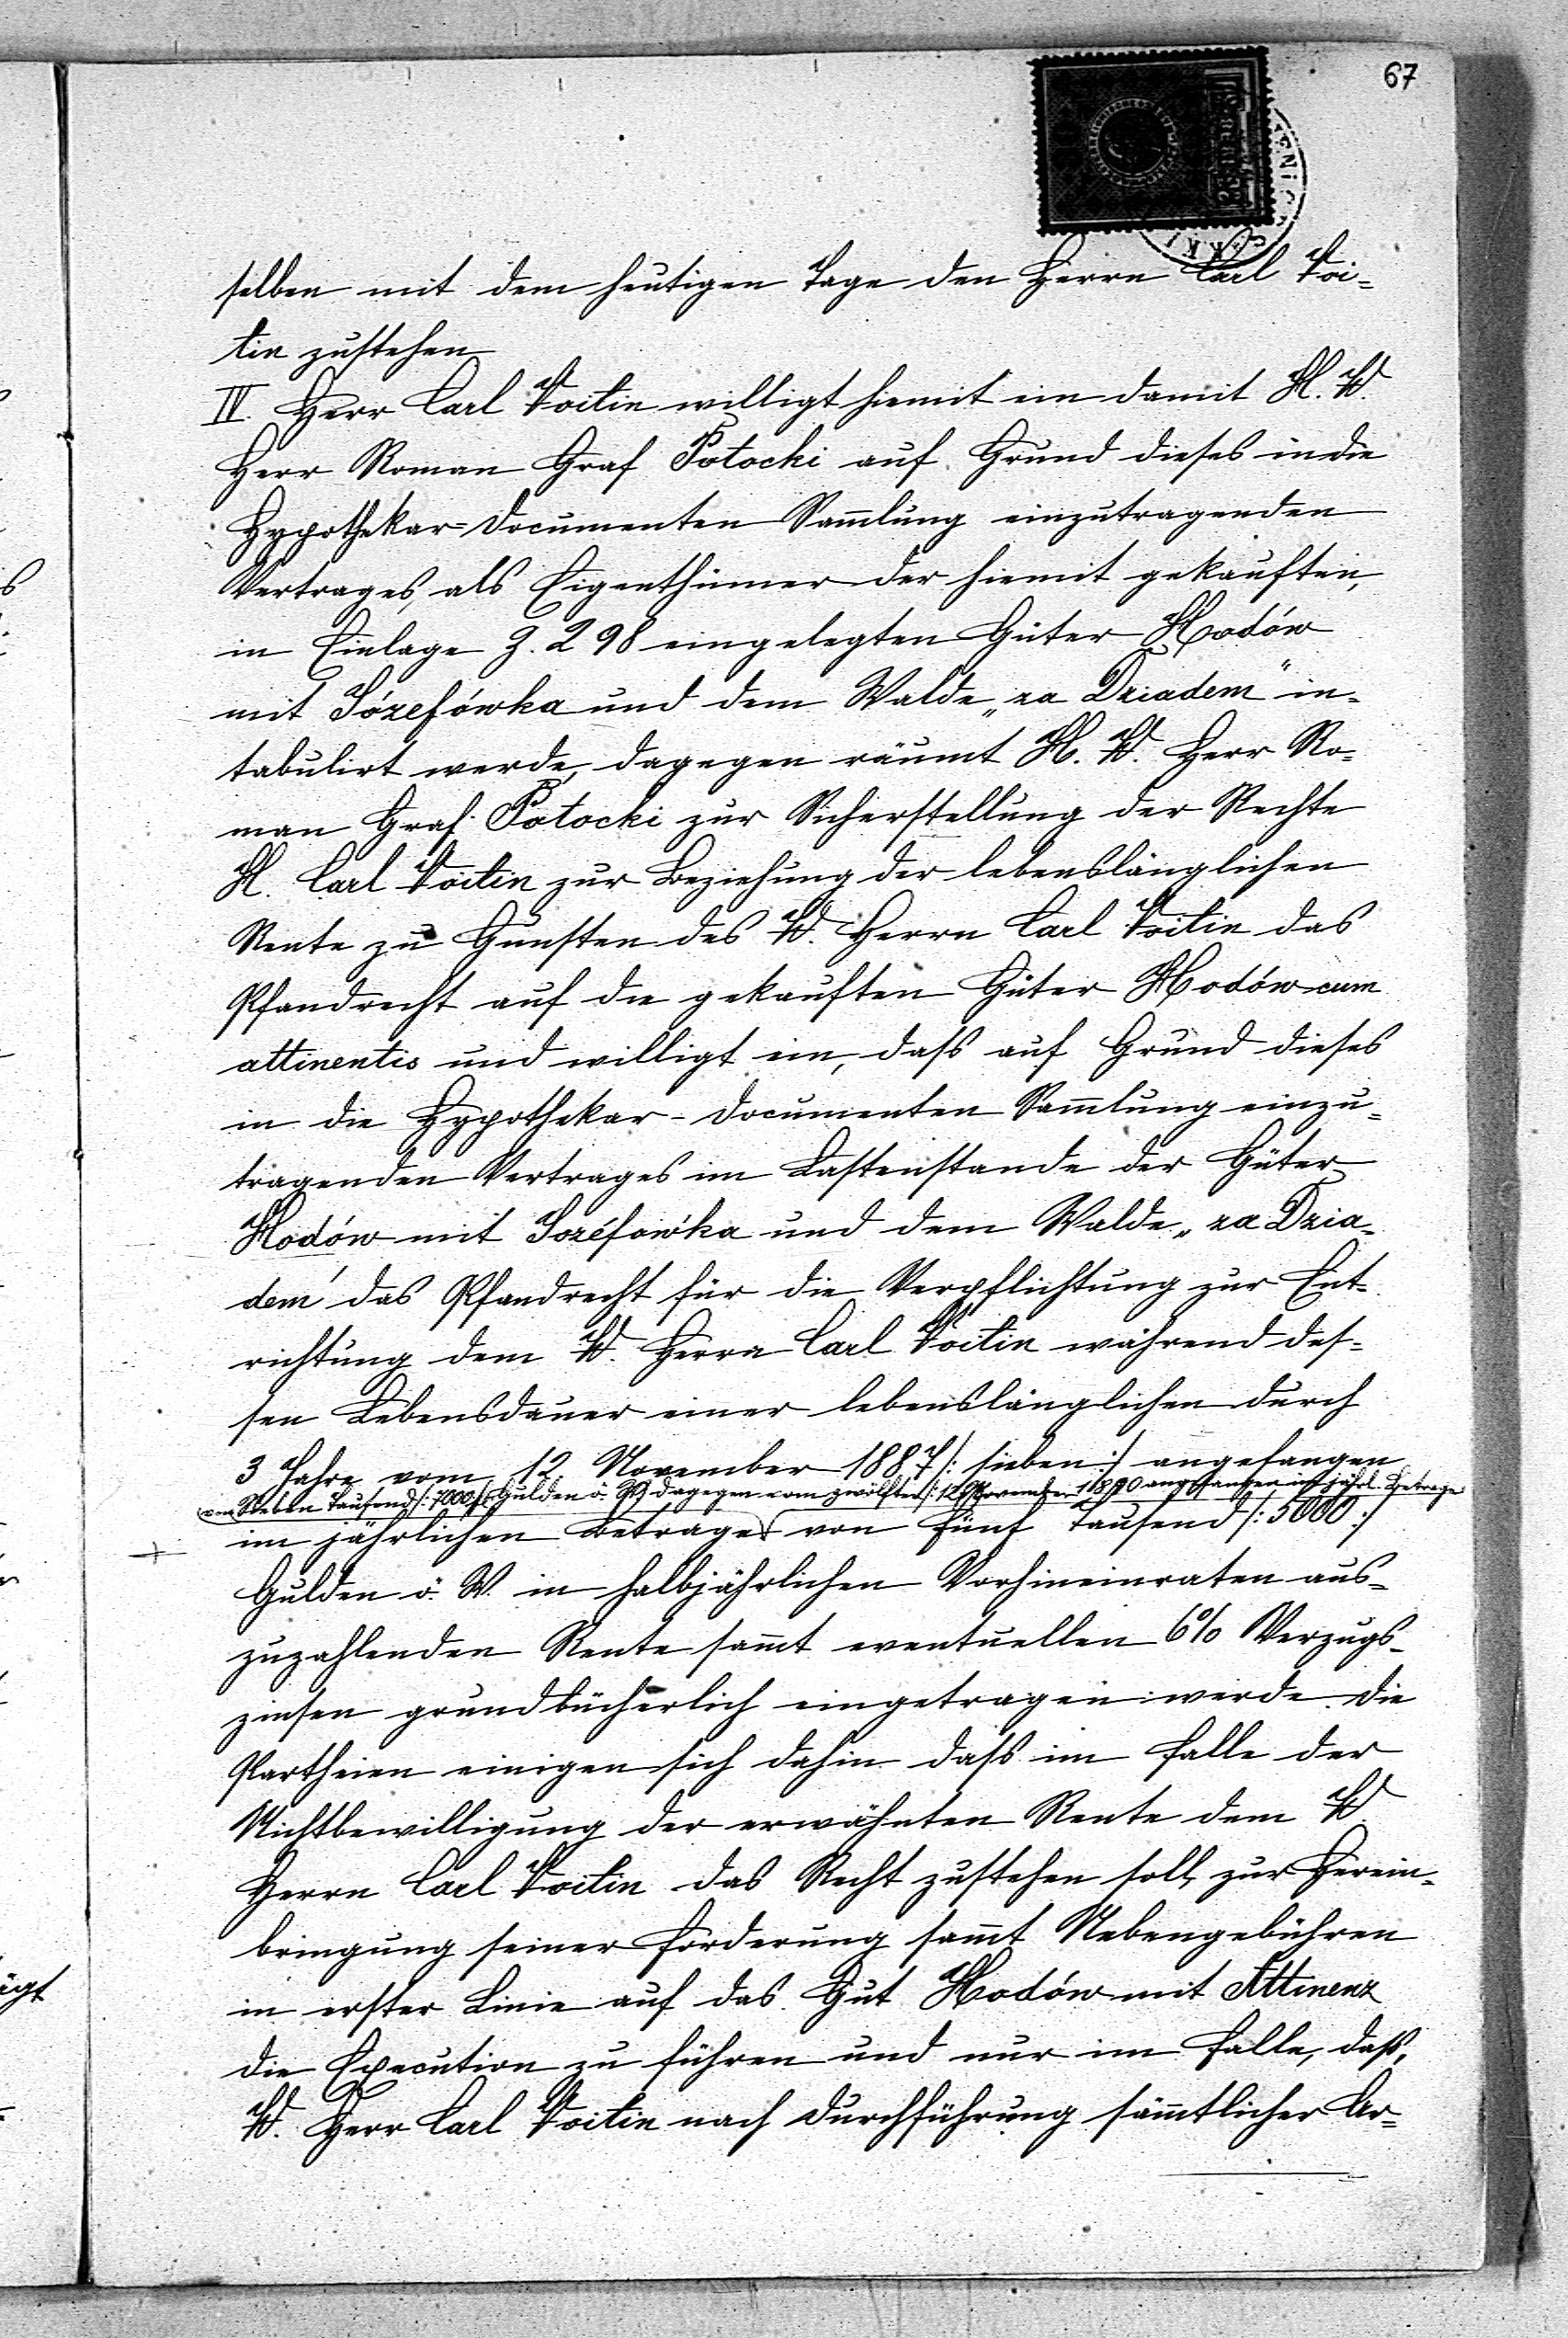 67
selben mit dem heutigen Tage den Herrn Carl Voi-
tin zustehen
IV. Herr Carl Voitin willigt hiemit ein damit H. W.
Herr Roman Graf Potocki auf Grund dieses in die
Hypothekar-Documenten Sam̄lung einzutragenden
Vertrages, als Eigenthümer der hiemit gekauften,
in Einlage Z. 298 eingelegten Güter Hodów
mit Józefówka und dem Walde „za Dziadem" in-
tabulirt werde, dagegen räumt H. W. Herr Ro-
man Graf Potocki zur Sicherstellung der Rechte
H. Carl Voitin zur Beziehung der lebenslänglichen
Rente zu Gunsten des W. Herrn Carl Voitin das
Pfandrecht auf die gekauften Güter Hodów cum
attinentis und willigt ein, dass auf Grund dieses
in die Hypothekar-Documenten Sam̄lung einzu-
tragenden Vertrages im Lastenstande der Güter
Hodów mit Joséfowka und dem Walde „za Dzia-
dem" das Pfandrecht für die Verpflichtung zur Ent-
richtung dem W. Herrn Carl Voitin während des-
sen Lebensdauer einer lebenslänglichen durch
3 Jahre vom 12 November 1887 /: sieben :/ angefangen
von Sieben Tausend /: 7000 :/ Gulden ö. W. dagegen vom zwölften /: 12 :/ November 1890 angefangen im jährl. Betrage
im jährlichen Betrage von fünf Tausend /: 5000 :/
Gulden ö. W. in halbjährlichen Vorhineinraten aus-
zuzahlenden Rente sam̄t eventuellen 6% Verzugs-
zinsen grundbücherlich eingetragen werde. Die
Partheien einigen sich dahin dass im Falle der
Nichtbewilligung der erwähnten Rente dem W.
Herrn Carl Voitin das Recht zustehen soll, zur Herein-
bringung seiner Forderung sam̄t Nebengebühren
in erster Linie auf das Gut Hodów mit Attinenz
die Execution zu führen und nur im Falle, dass,
W. Herr Carl Voitin nach Durchführung säm̄tlicher Ar-